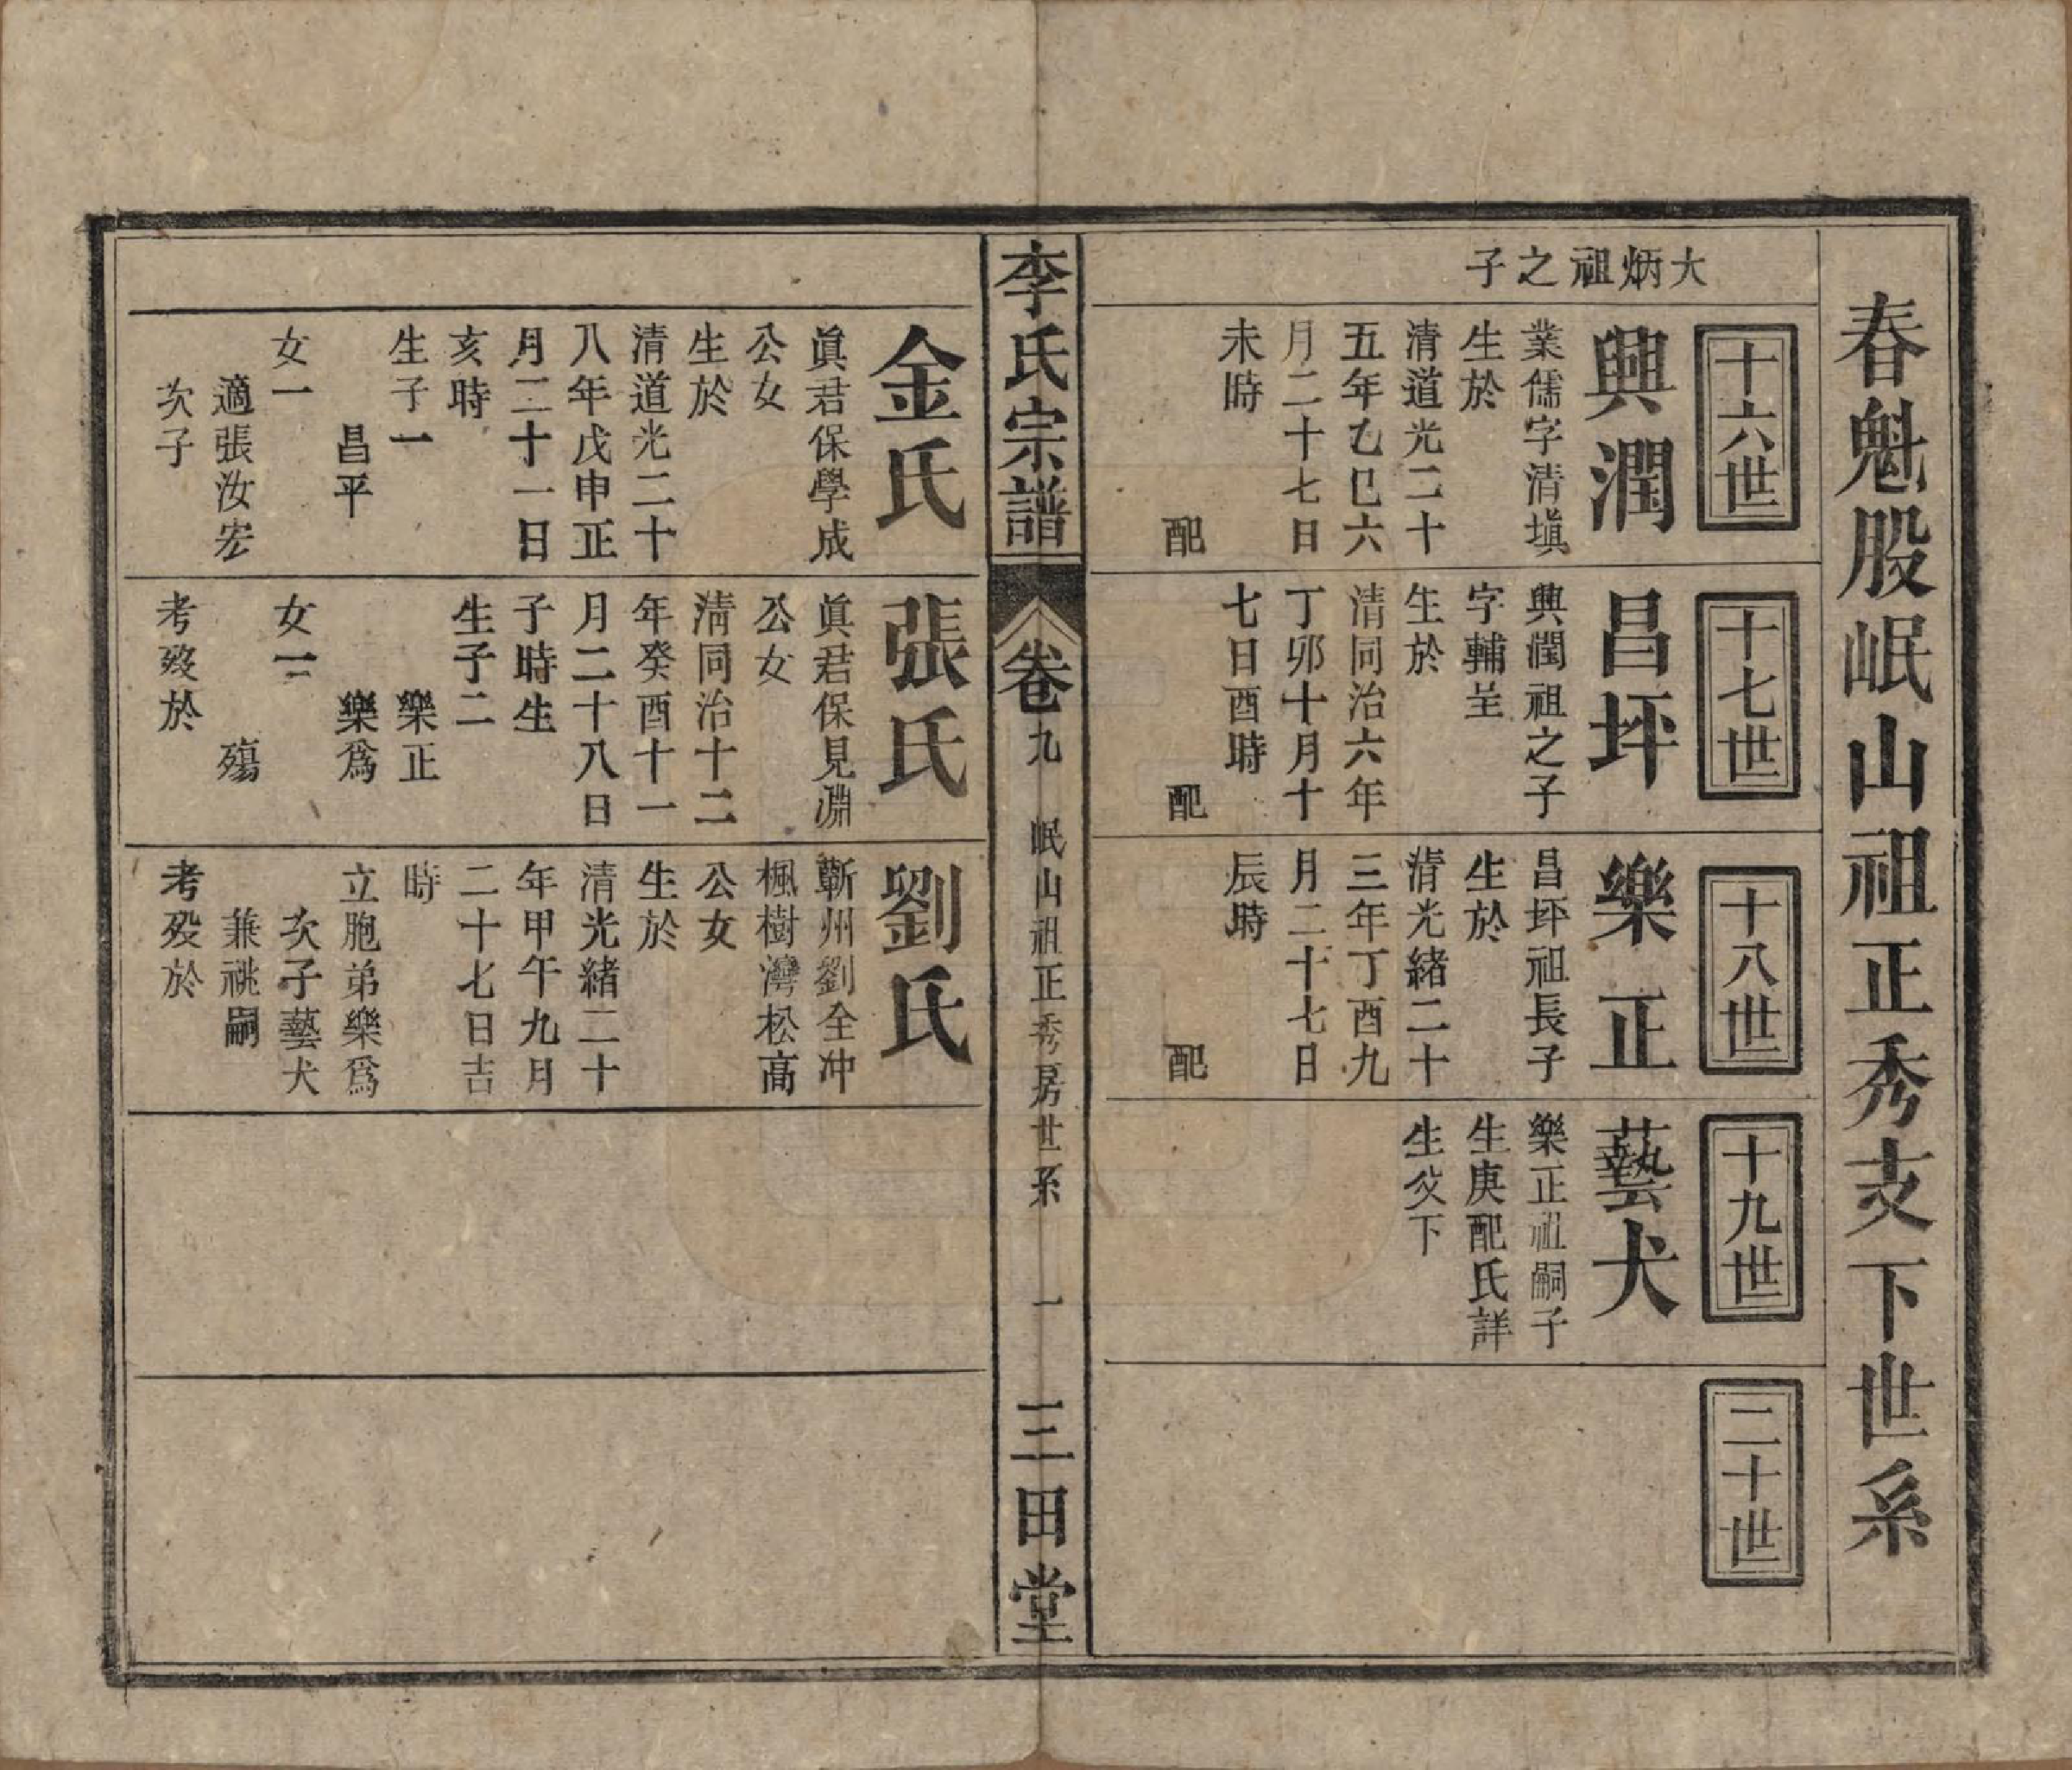 春魁股岷山祖正秀支下世系
大炳祖之子
十六世
興潤
業儒字清塡
生於
清道光二十
五年乙巳六
月二十七日
未時
配
十七世
昌坪
興潤祖之子
字輔呈
生於
清同治六年
丁卯十月十
七日酉時
配
十八世
樂正
昌坪祖長子
生於
清光緒二十
三年丁酉九
月二十七日
辰時
配
十九世
藝犬
樂正祖嗣子
生庚配氏詳
生父下
二十世
李氏宗譜
卷九
岷山祖正秀房世系
一
三田堂
金氏
眞君保學成
公女
生於
清道光二十
八年戊申正
月二十一日
亥時
生子一
昌平
女一
適張汝宏
次子
張氏
眞君保見淵
公女
清同治十二
年癸酉十一
月二十八日
子時生
生子二
樂正
樂爲
女一
殤
考歿於
劉氏
蘄州劉全冲
楓樹灣松高
公女
生於
清光緒二十
年甲午九月
二十七日吉
時
立胞弟樂爲
次子藝犬
兼祧嗣
考歿於